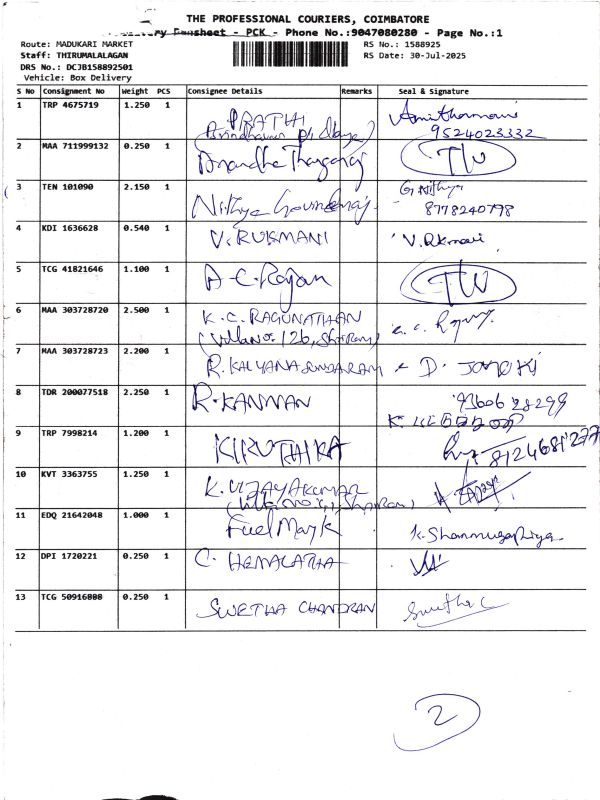 THE PROFESSIONAL COURIERS, COIMBATORE
Runsheet - PCK - Phone No.:9047080280 - Page No.:1
Route: MADUKARI MARKET
RS No.: 1588925
Staff: THIRUMALALAGAN
RS Date: 30-Jul-2025
DRS No.: DCJB158892501
Vehicle: Box Delivery
S No Consignment No Weight PCS Consignee Details Remarks Seal & Signature
1 TRP 4675719 1.250 1 PRATHI
9524023332
2 MAA 711999132 0.250 1 Anandha Thayaraj TW
3 TEN 101090 2.150 1 Nithya Govindaraj G. Nithya
8778240798
4 KDI 1636628 0.540 1 V. RUKMANI V. Rkmani
5 TCG 41821646 1.100 1 A C. Rajan TW
6 MAA 303728720 2.500 1 K. C. RAGUNATHAN
(Villa no. 126, Shriram)
7 MAA 303728723 2.200 1 R. KALYANASUNDARAM D. JANAKI
8 TDR 200077518 2.250 1 R. KANNAN 93606 28299
9 TRP 7998214 1.200 1 KIRUTHIKA 8124681277
10 KVT 3363755 1.250 1 K. VIJAYAKUMAR
11 EDQ 21642048 1.000 1 Fuel Mark K. Shanmugapriya
12 DPI 1720221 0.250 1 C. HEMALATHA
13 TCG 50916888 0.250 1 SWETHA CHANDRAN Swetha C
2